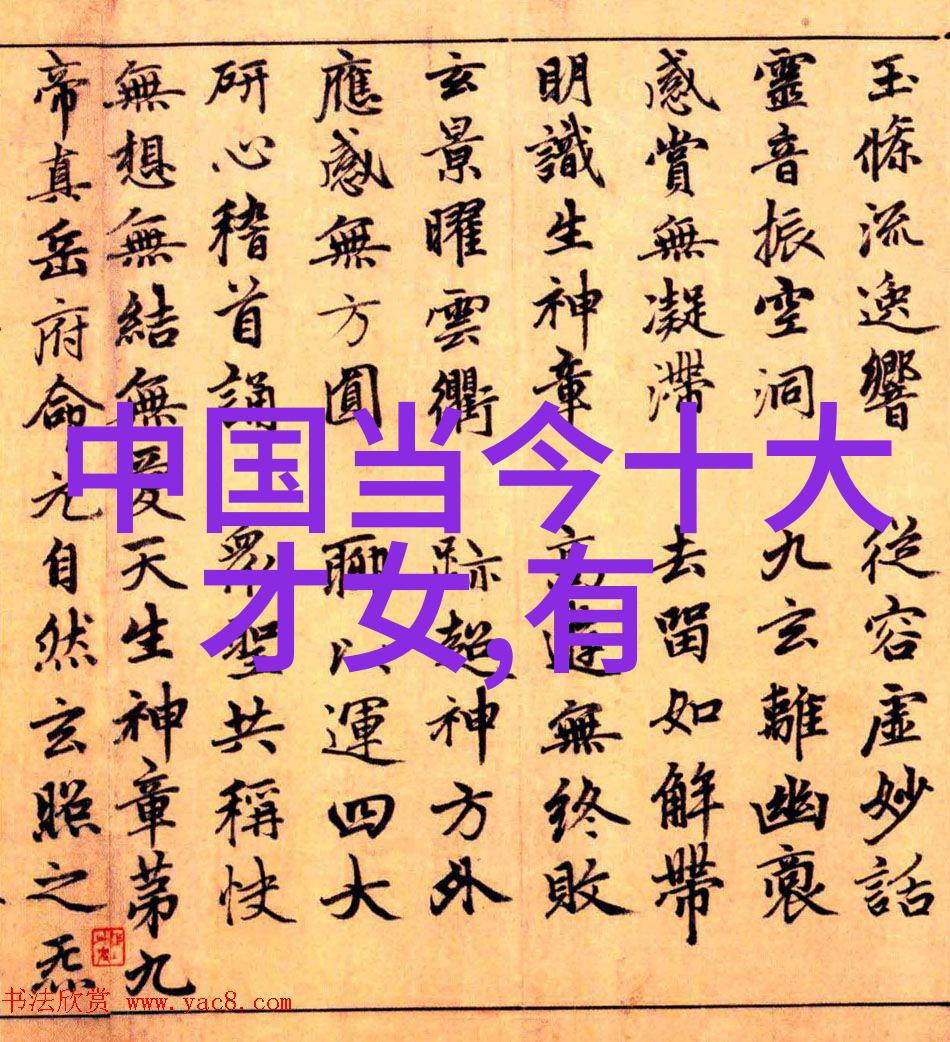 中国当今十大
才女,有
玉條流逸響 從容虛妙話
靈音振空洞 九玄離幽
感賞無凝滯 去留如解帶
明識生神章 高遊無終敗
玄景曜雲衢 跡超神方外
應感無方圓 聊以運四大
研心稽首誦 衆聖共稱快
無想無結無愛天生神章第九
帝真岳府命元自然玄照之炁
书法欣赏 www.yac8.com